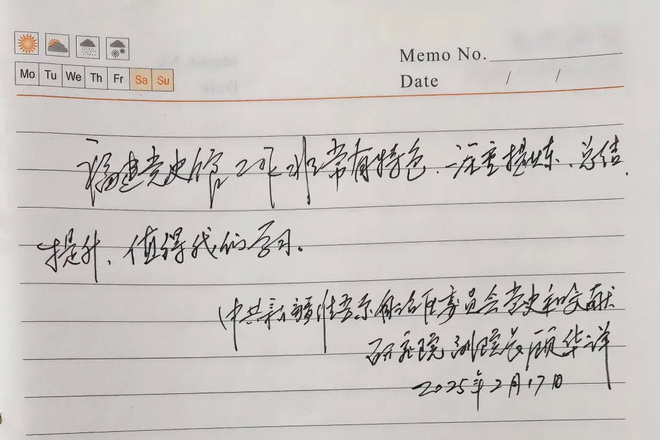 Memo No.
Mo Tu We Th Fr Sa Su
Date / /
福建党史馆工作非常有特色、注重提炼、总结、
提升、值得我们学习。
中共新疆维吾尔自治区委员会党史和文献
研究院副院长顾华详
2025年2月17日